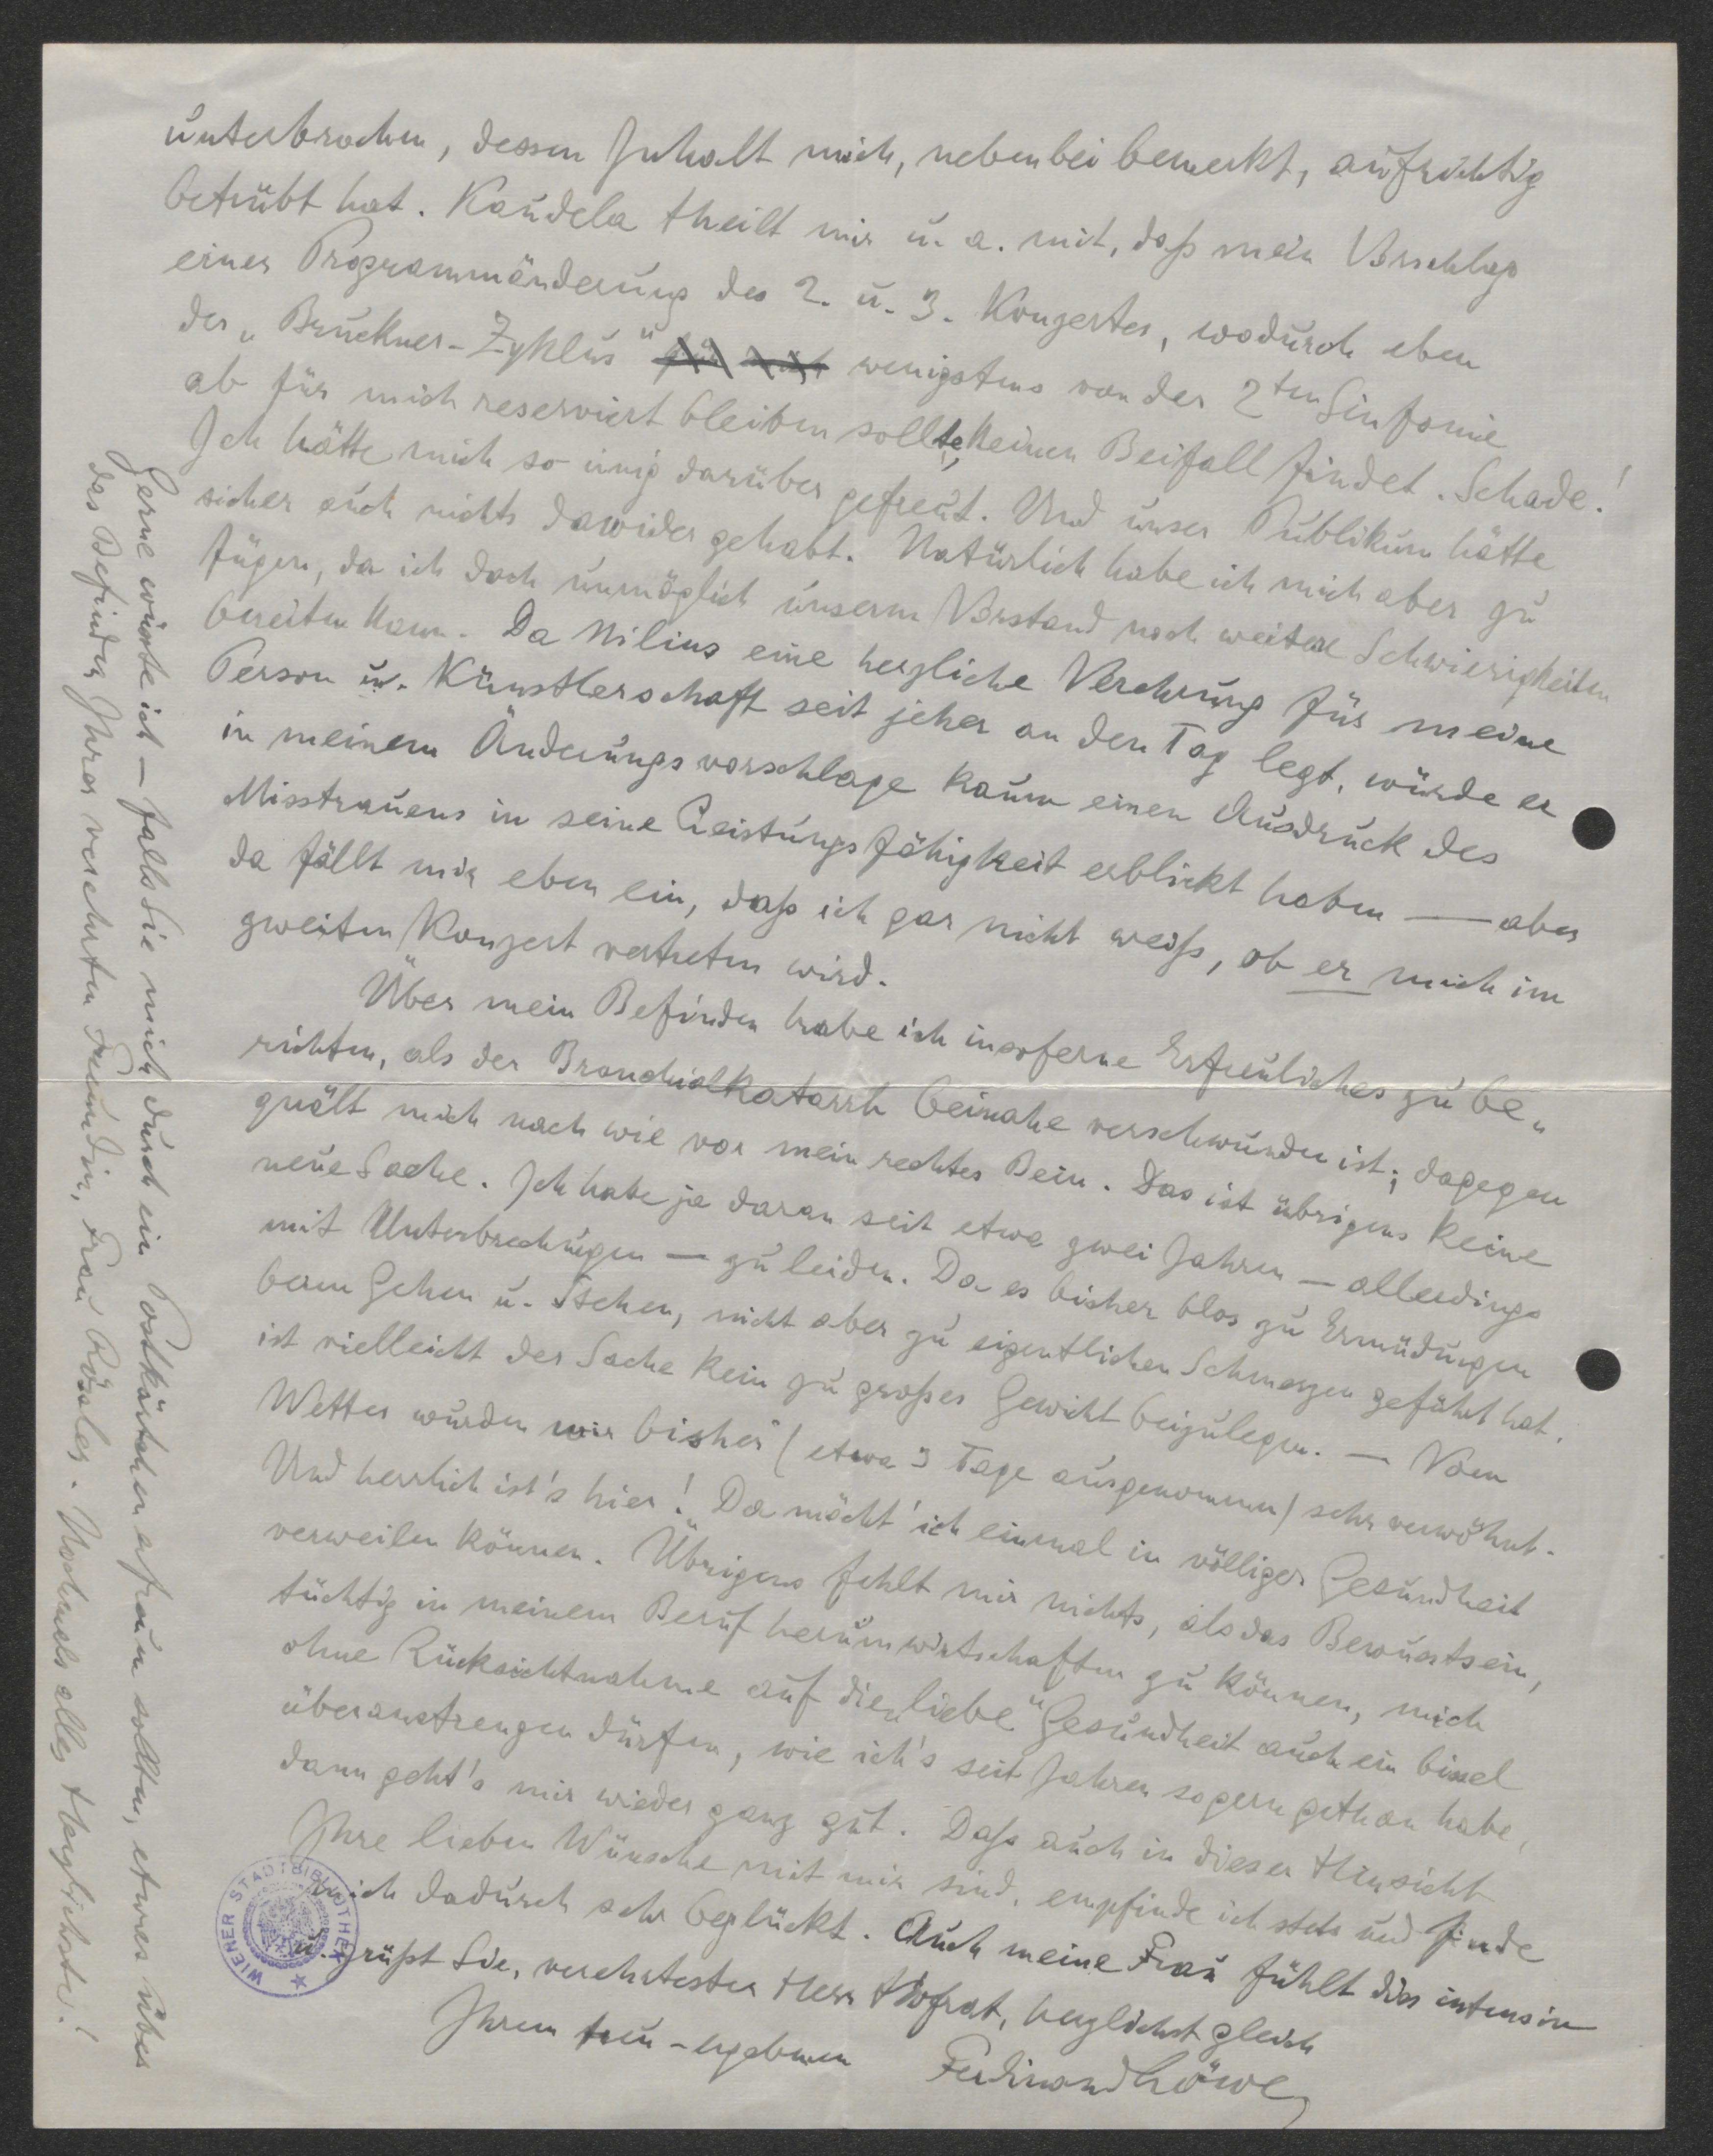 unterbrochen, dessen Inhalt mich, nebenbei bemerkt, aufrichtig
betrübt hat. Kaudela theilt mir u. a. mit, daß mein Vorschlag
einer Programmänderung des 2. u. 3. Konzertes, wodurch eben
der „Bruckner-Zyklus" wenigstens von der 2ten Sinfonie
ab für mich reserviert bleiben sollte, keinen Beifall findet. Schade!
Ich hätte mich so innig darüber gefreut. Und unser Publikum hätte
sicher auch nichts dawider gehabt. Natürlich habe ich mich aber zu
fügen, da ich doch unmöglich unserm Vorstand noch weitere Schwierigkeiten
bereiten kann. Da Nilius eine herzliche Verehrung für meine
Person u. Künstlerschaft seit jeher an den Tag legt, würde er
in meinem Änderungsvorschlage kaum einen Ausdruck des
Misstrauens in seine Leistungsfähigkeit erblickt haben — aber
da fällt mir eben ein, daß ich gar nicht weiß, ob er mich im
zweiten Konzert vertreten wird.
Über mein Befinden habe ich insoferne Erfreuliches zu be„
richten, als der Bronchialkatarrh beinahe verschwunden ist; dagegen
quält mich nach wie vor mein rechtes Bein. Das ist übrigens keine
neue Sache. Ich habe ja daran seit etwa zwei Jahren — allerdings
mit Unterbrechungen — zu leiden. Da es bisher blos zu Ermüdungen
beim Gehen u. Stehen, nicht aber zu eigentlichen Schmerzen geführt hat,
ist vielleicht der Sache kein zu großes Gewicht beizulegen. — Vom
Wetter wurden wir bisher (etwa 3 Tage ausgenommen) sehr verwöhnt.
Und herrlich ist's hier! Da möcht' ich einmal in völliger Gesundheit
verweilen können. Übrigens fehlt mir nichts, als das Bewusstsein,
tüchtig in meinem Beruf herumwirtschaften zu können, mich
ohne Rücksichtnahme auf die „liebe" Gesundheit auch ein bissel
überanstrengen dürfen, wie ich's seit Jahren so gern gethan habe,
dann geht's mir wieder ganz gut. Daß auch in dieser Hinsicht
Ihre lieben Wünsche mit mir sind, empfinde ich stets und finde
mich dadurch sehr beglückt. Auch meine Frau fühlt dies intensiv
u. grüßt Sie, verehrtester Herr Hofrat, herzlichst gleich
Ihrem treu-ergebenen Ferdinand Löwe
Gerne wüsste ich — falls Sie mich durch ein Postkärtchen erfreuen sollten, etwas über
das Befinden Ihrer verehrten Freundin, Frau Rösler. Nochmals alles Herzlichste!
WIENER STADTBIBLIOTHEK